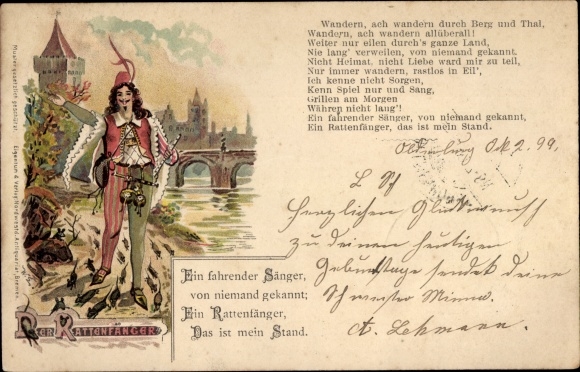 Wandern, ach wandern durch Berg und Thal,
Wandern, ach wandern allüberall!
Weiter nur eilen durch's ganze Land,
Nie lang' verweilen, von niemand gekannt.
Nicht Heimat, nicht Liebe ward mir zu teil,
Nur immer wandern, rastlos in Eil',
Ich kenne nicht Sorgen,
Kenn Spiel nur und Sang,
Grillen am Morgen
Währen nicht lang'!
Ein fahrender Sänger, von niemand gekannt,
Ein Rattenfänger, das ist mein Stand.
Oldenburg Ok 2. 99.
L Sch
Herzlichen Glückwunsch
zu deinem heutigen
Geburtstage sendet deine
Schwester Minna.
A. Lehmann.
Ein fahrender Sänger,
von niemand gekannt;
Ein Rattenfänger,
Das ist mein Stand.
DER RATTENFÄNGER